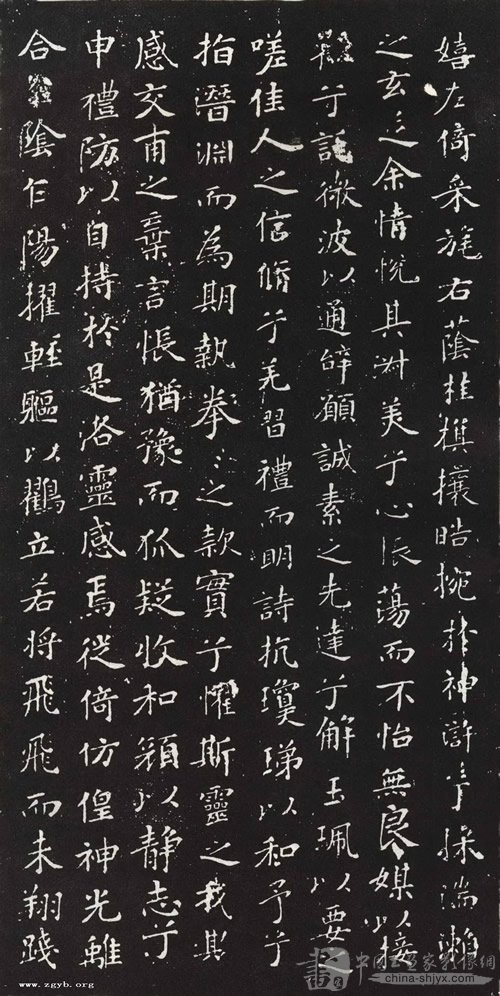 嬉左倚采旄右蔭桂旗攘皓捥於神滸兮採湍瀨
之玄芝余情悅其淑美兮心振蕩而不怡無良媒以接
懽兮託微波以通辭願誠素之先達兮解玉珮以要
嗟佳人之信脩兮羌習禮而明詩抗瓊珶以和予兮
指潛淵而為期執拳〻之款實兮懼斯靈之我其
感交甫之棄言悵猶豫而狐疑收和顏以靜志兮
申禮防以自持於是洛靈感焉徙倚仿偟神光離
合乍陰乍陽擢輕軀以鶴立若將飛飛而未翔踐
www.zgyb.org
china-shjyx.com